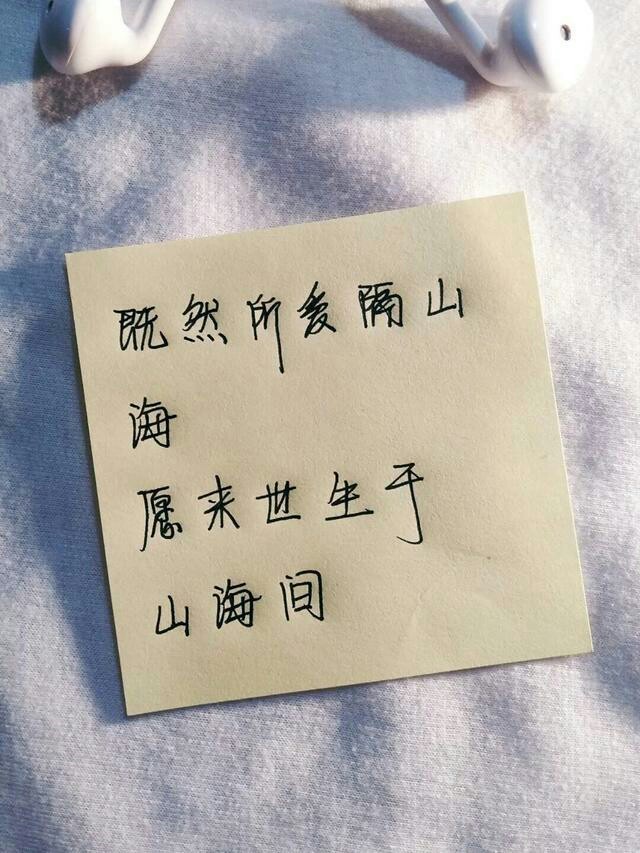 既然所爱隔山
海
愿来世生于
山海间